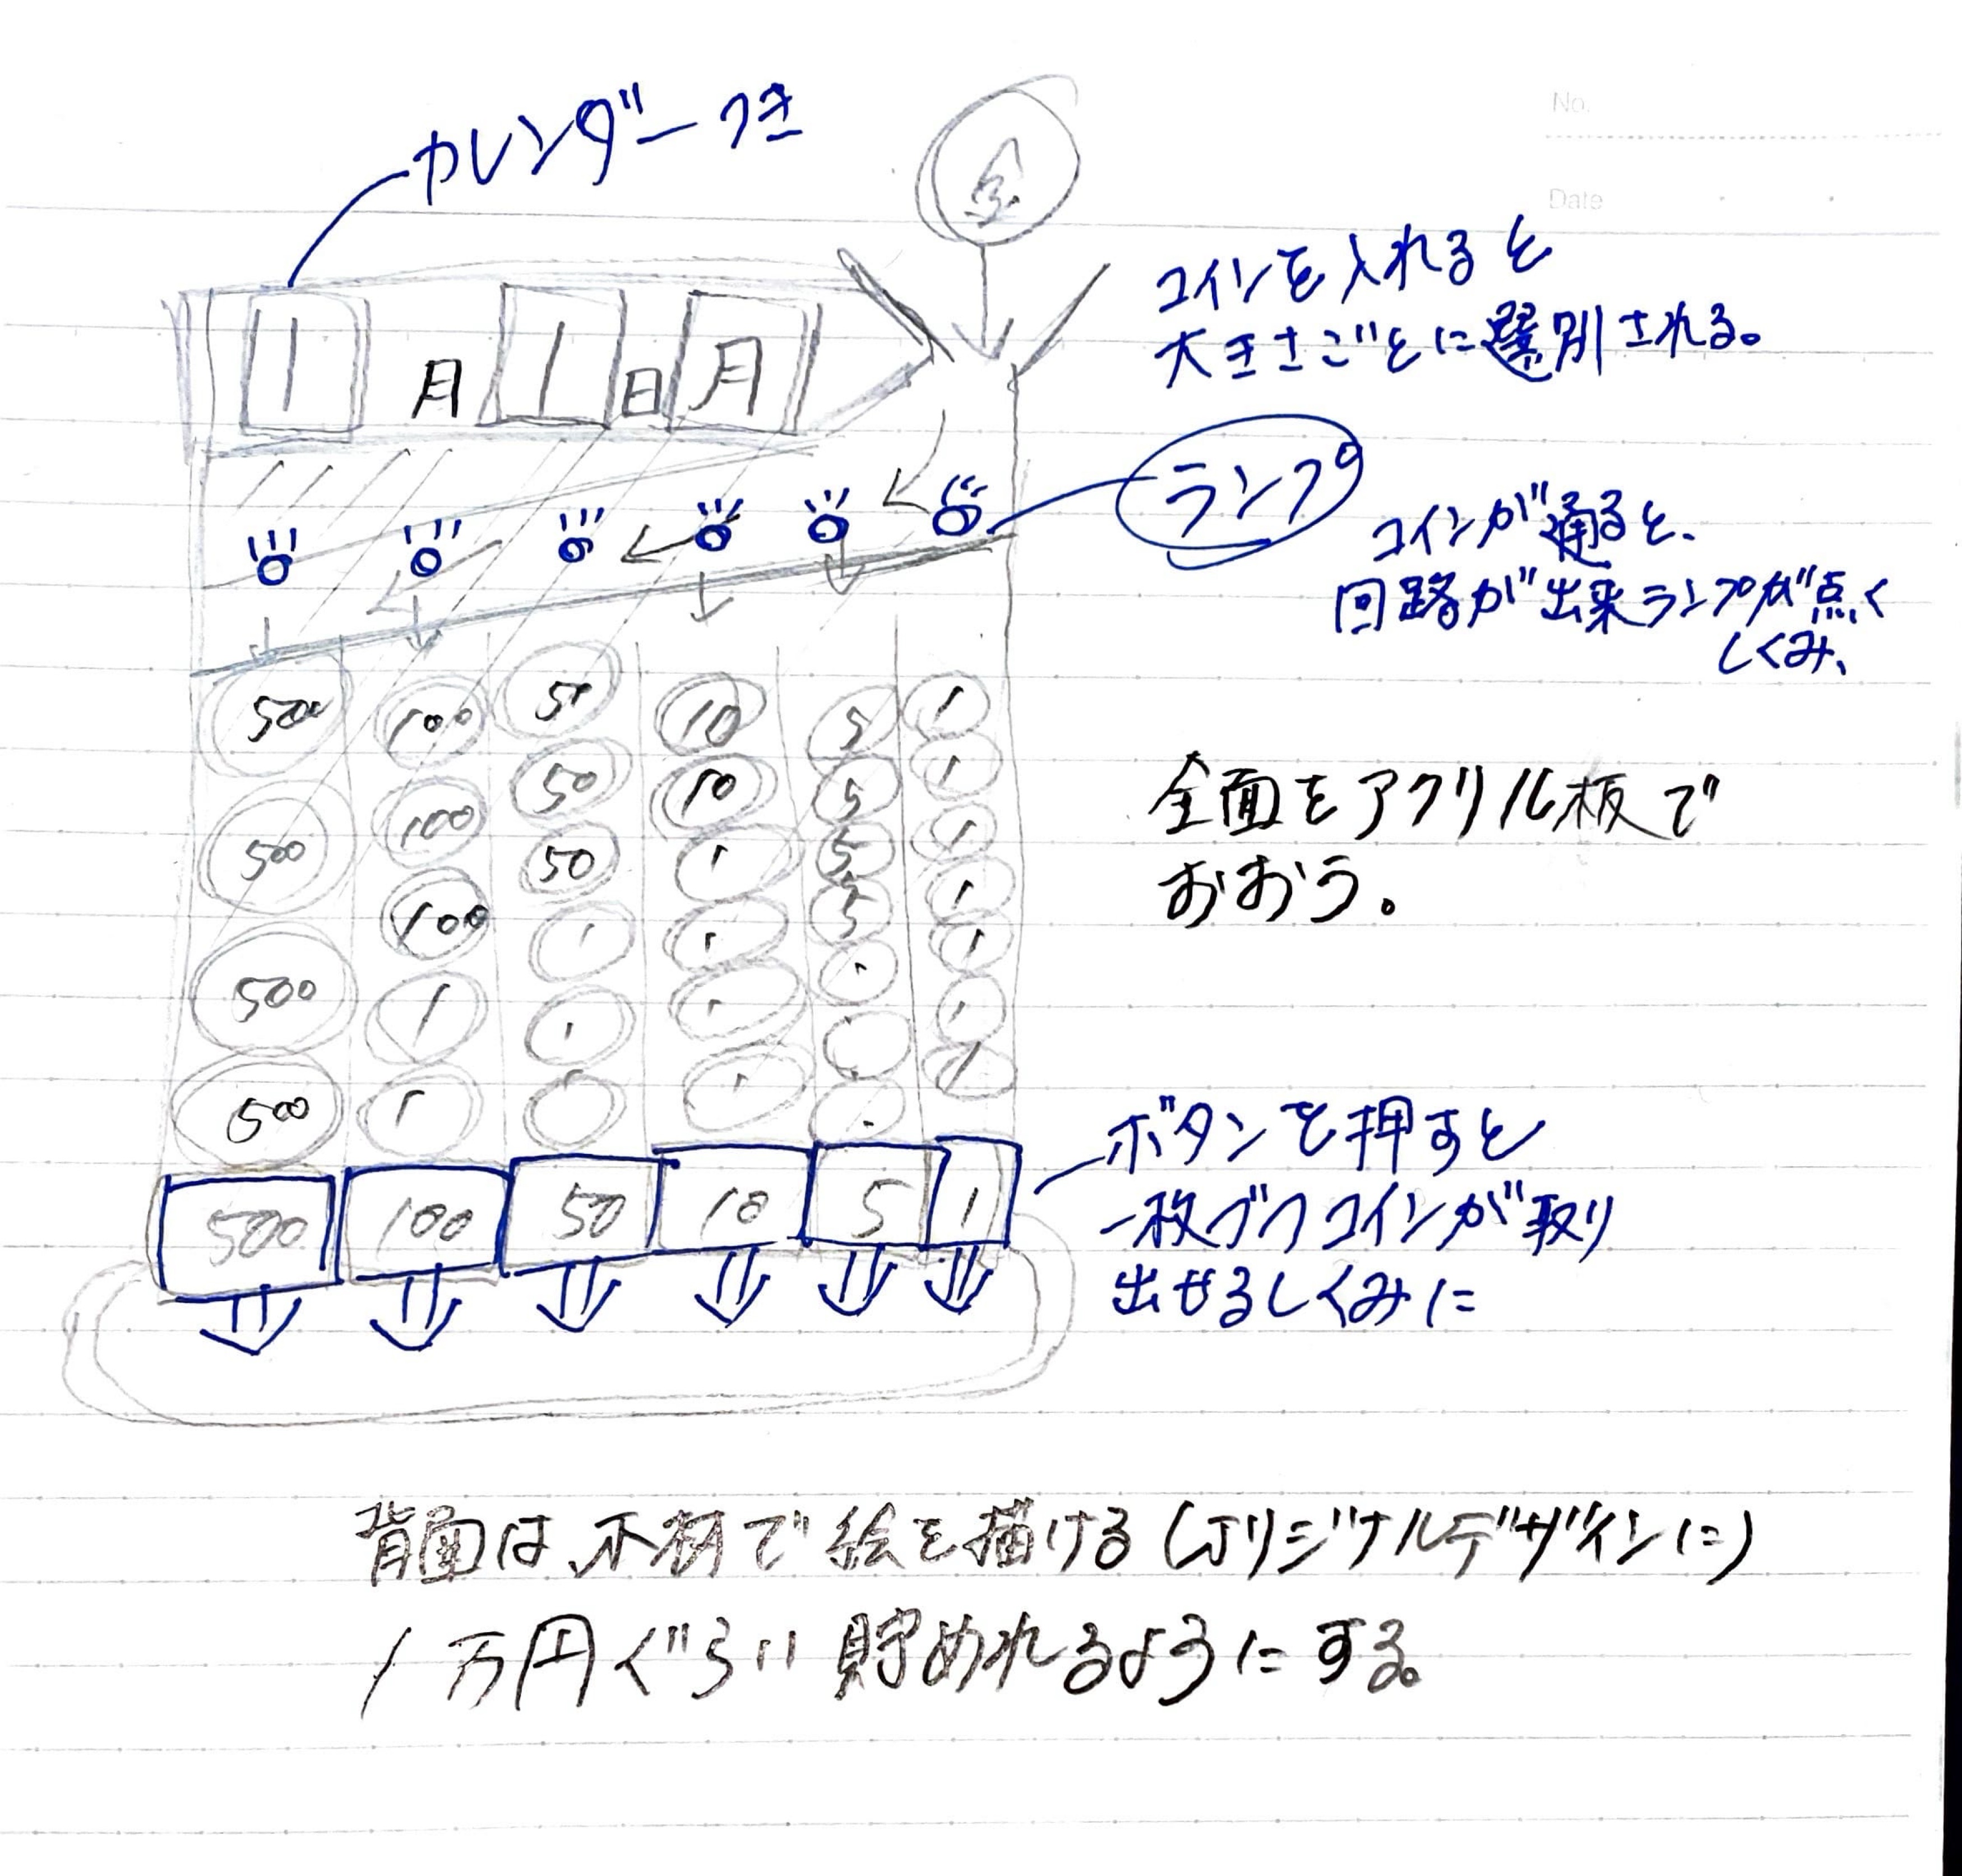 No.
Date
カレンダーつき
金
コインを入れると
大きさごとに選別される。
1月1日月
ランプ
コインが通ると、
回路が出来ランプが点く
しくみ、
500 100 50 10 5 1
500 100 50 10 5 1
500 100 50 1 5 1
500 1 1 1 5 1
1 1 1 1 1
1 1 1
全面をアクリル板で
おおう。
500 100 50 10 5 1
ボタンを押すと
一枚づつコインが取り
出せるしくみに
背面は木材で絵を描ける(オリジナルデザインに)
1万円ぐらい貯めれるようにする。